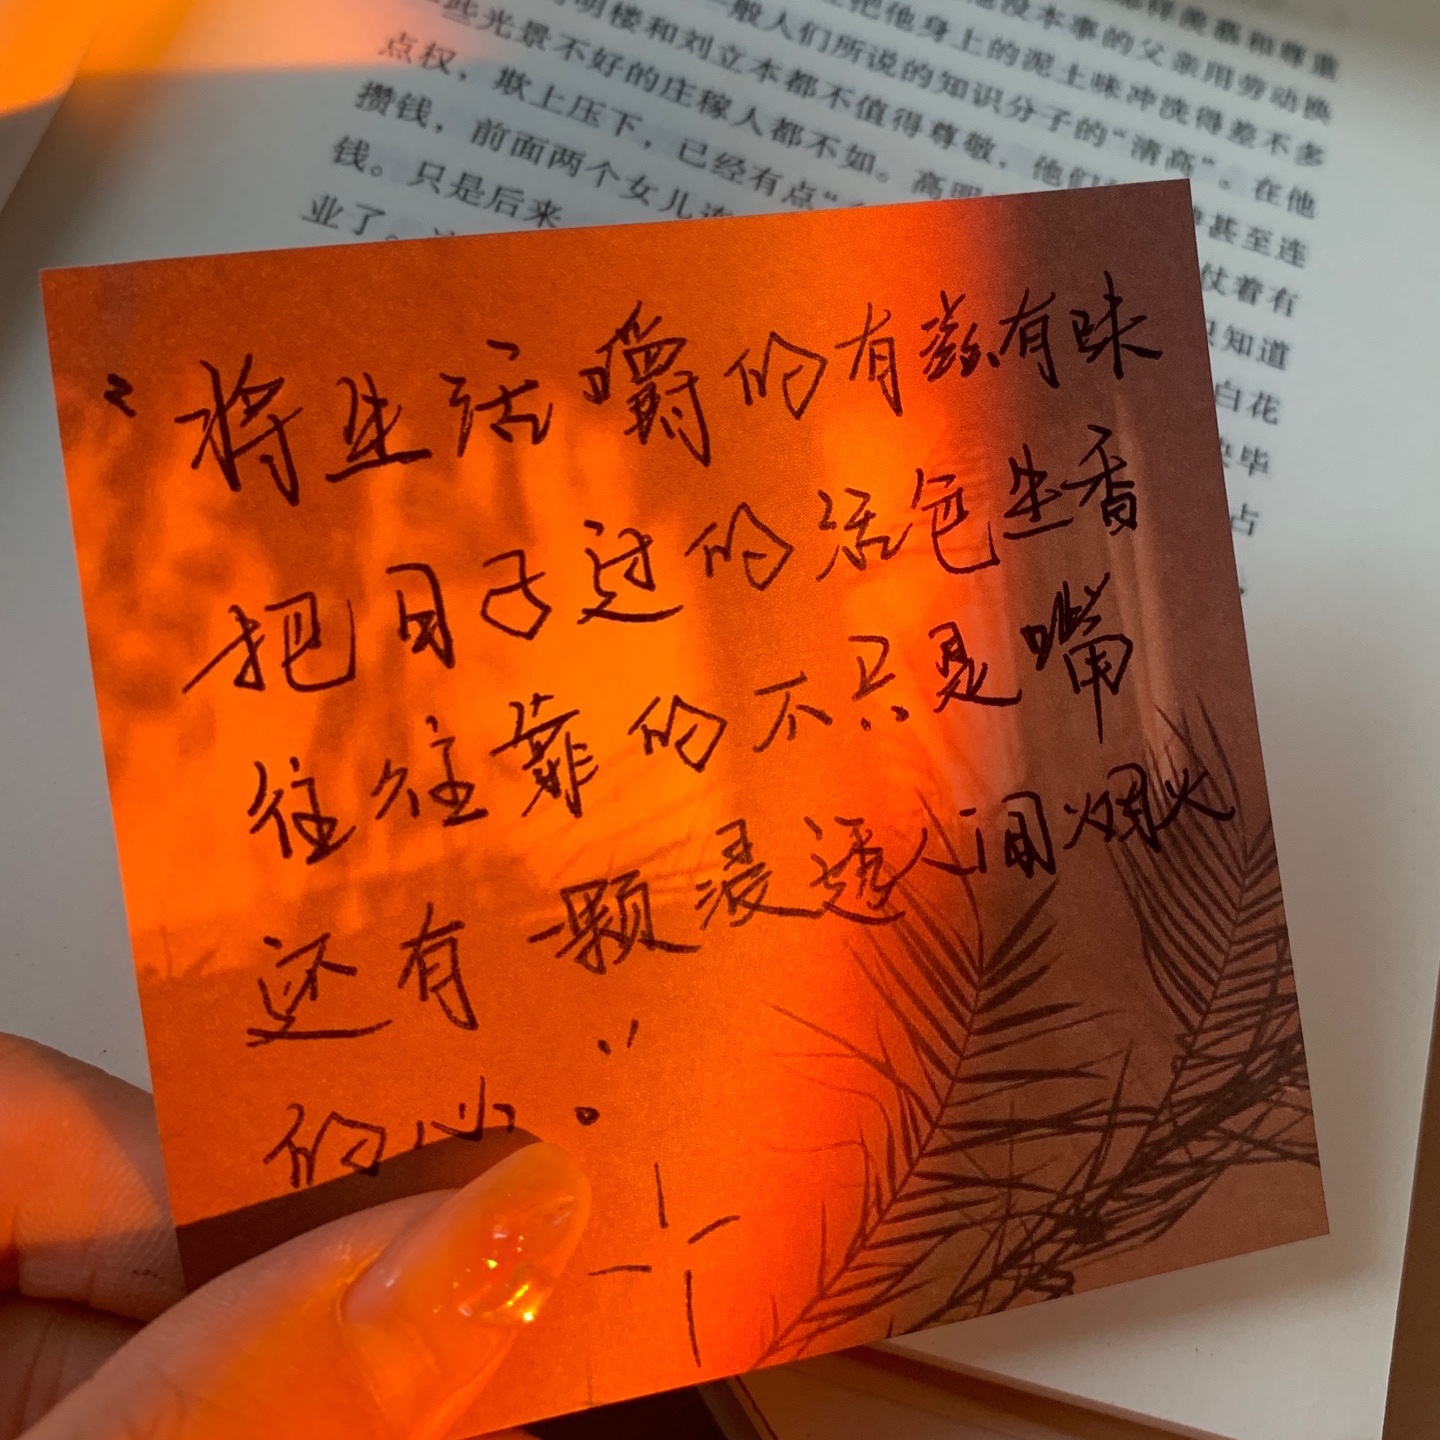 些光景不好的庄稼人都不如。高明
点权，欺上压下，已经有点“
攒钱，前面两个女儿连
钱。只是后来
业了。
明楼和刘立本都不值得尊敬，他们
一般人们所说的知识分子的“清高”。在他
把他身上的泥土味冲洗得差不多
没本事的父亲用劳动换
和尊重
甚至连
仗着有
只知道
白花
毕
占
“将生活嚼的有滋有味
把日子过的活色生香
往往靠的不只是嘴
还有一颗浸透人间烟火
的心。”